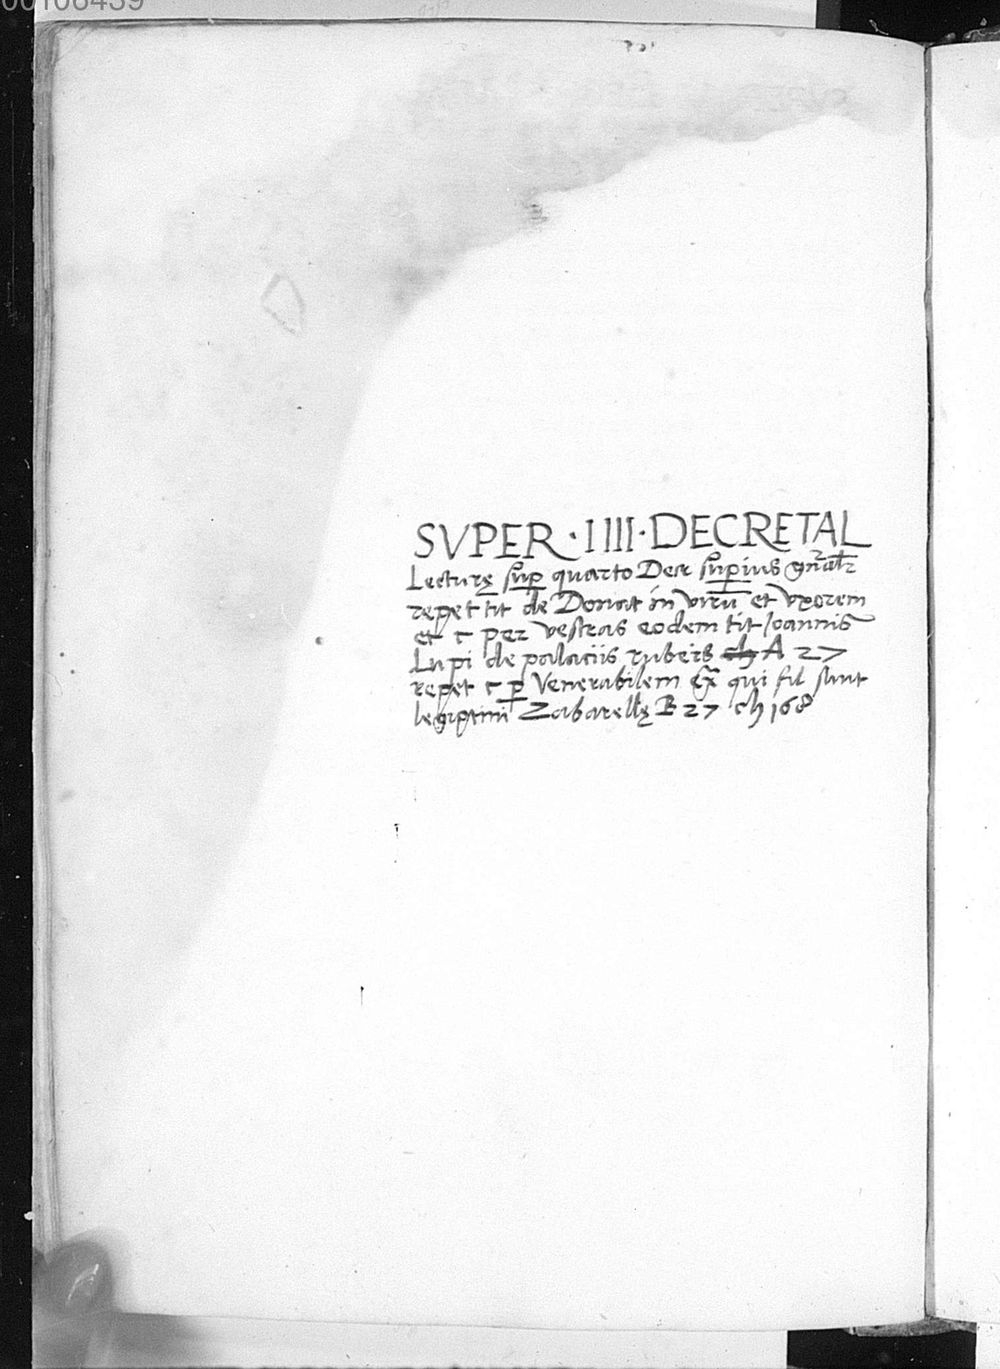 00108439
SVPER · IIII · DECRETAL
Lecturę sup̱ quarto Decr sup̱ius gn̄alr
repet tit de Donat in virū et vxorem
et c per vestras eodem tit Joannis
Lupi de palaciis rubeis ch A 27
repet c p̱ Venerabilem Ex̄ qui fil sunt
legiptimi Zabarellę B 27 ch 168